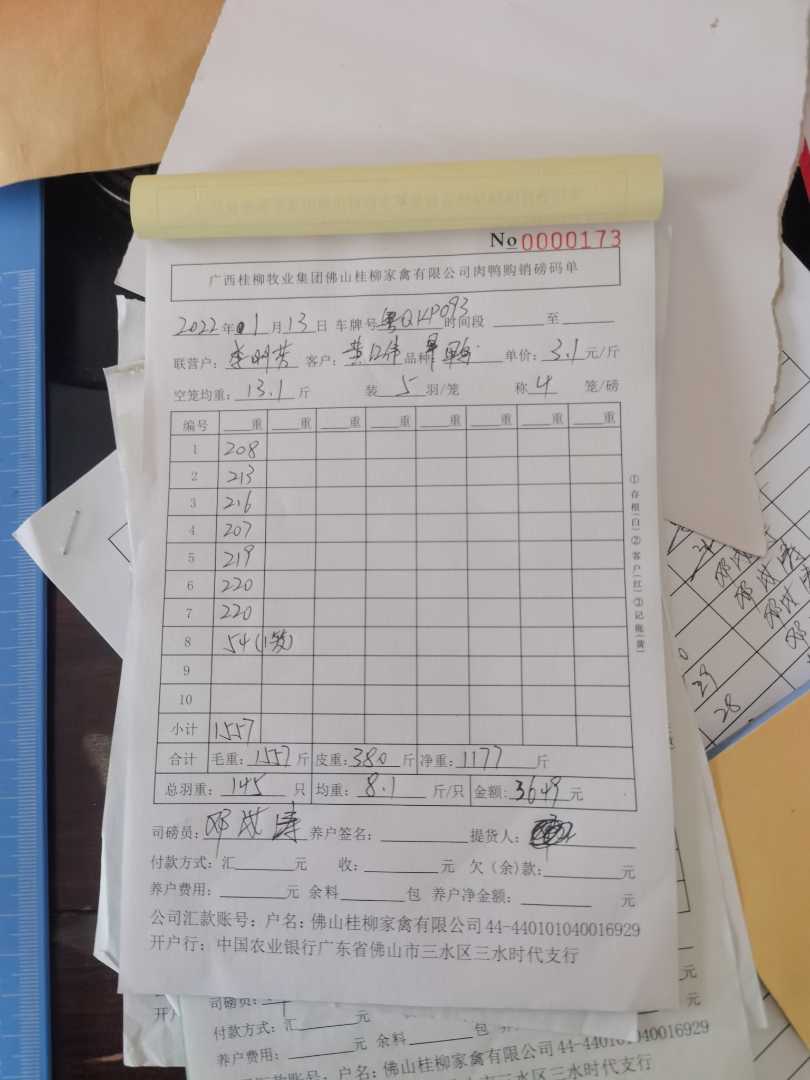 No 0000173
广西桂柳牧业集团佛山桂柳家禽有限公司肉鸭购销磅码单
2022年01月13日 车牌号粤QKP093时间段 至
联营户: 客户: 品种 单价: 3.1元/斤
空笼均重: 13.1斤 装 5 羽/笼 称 4 笼/磅
编号 重 重 重 重 重 重 重 重
1 208
2 213
3 216
4 207
5 219
6 220
7 220
8 54(1笼)
9
10
小计 1557
合计 毛重: 1557斤 皮重: 380斤 净重: 1177斤
总羽重: 145只 均重: 8.1斤/只 金额: 3649元
司磅员: 养户签名: 提货人:
付款方式: 汇 元 收: 元 欠(余)款: 元
养户费用: 元 余料 包 养户净金额: 元
公司汇款账号: 户名: 佛山桂柳家禽有限公司 44-440101040016929
开户行: 中国农业银行广东省佛山市三水区三水时代支行
①存根(白)②客户(红)③记账(黄)
司磅员:
付款方式: 汇 元
养户费用: 元 余料 包
户名: 佛山桂柳家禽有限公司 44-44010
040016929
29
28